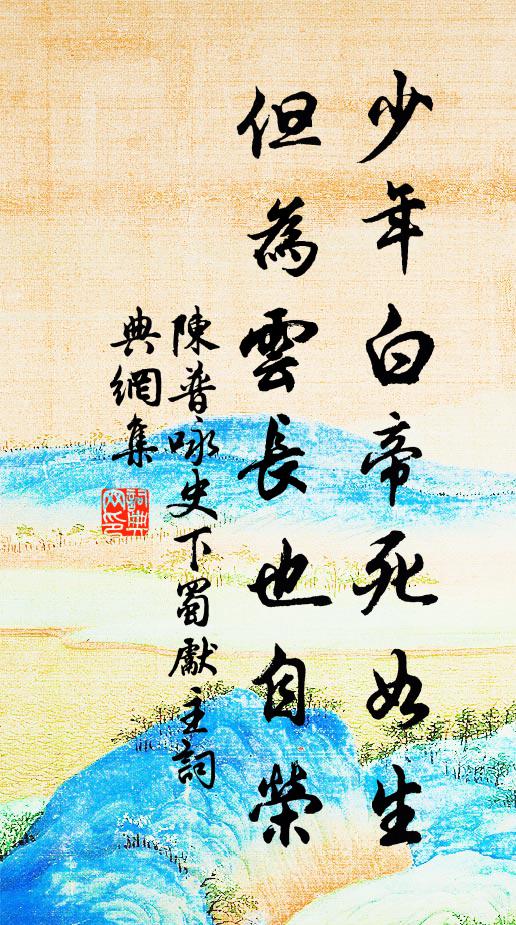 少年白帝死如生
但為雲長也自榮
陳普咏史下蜀獻主詞
典網集
詞典
網印